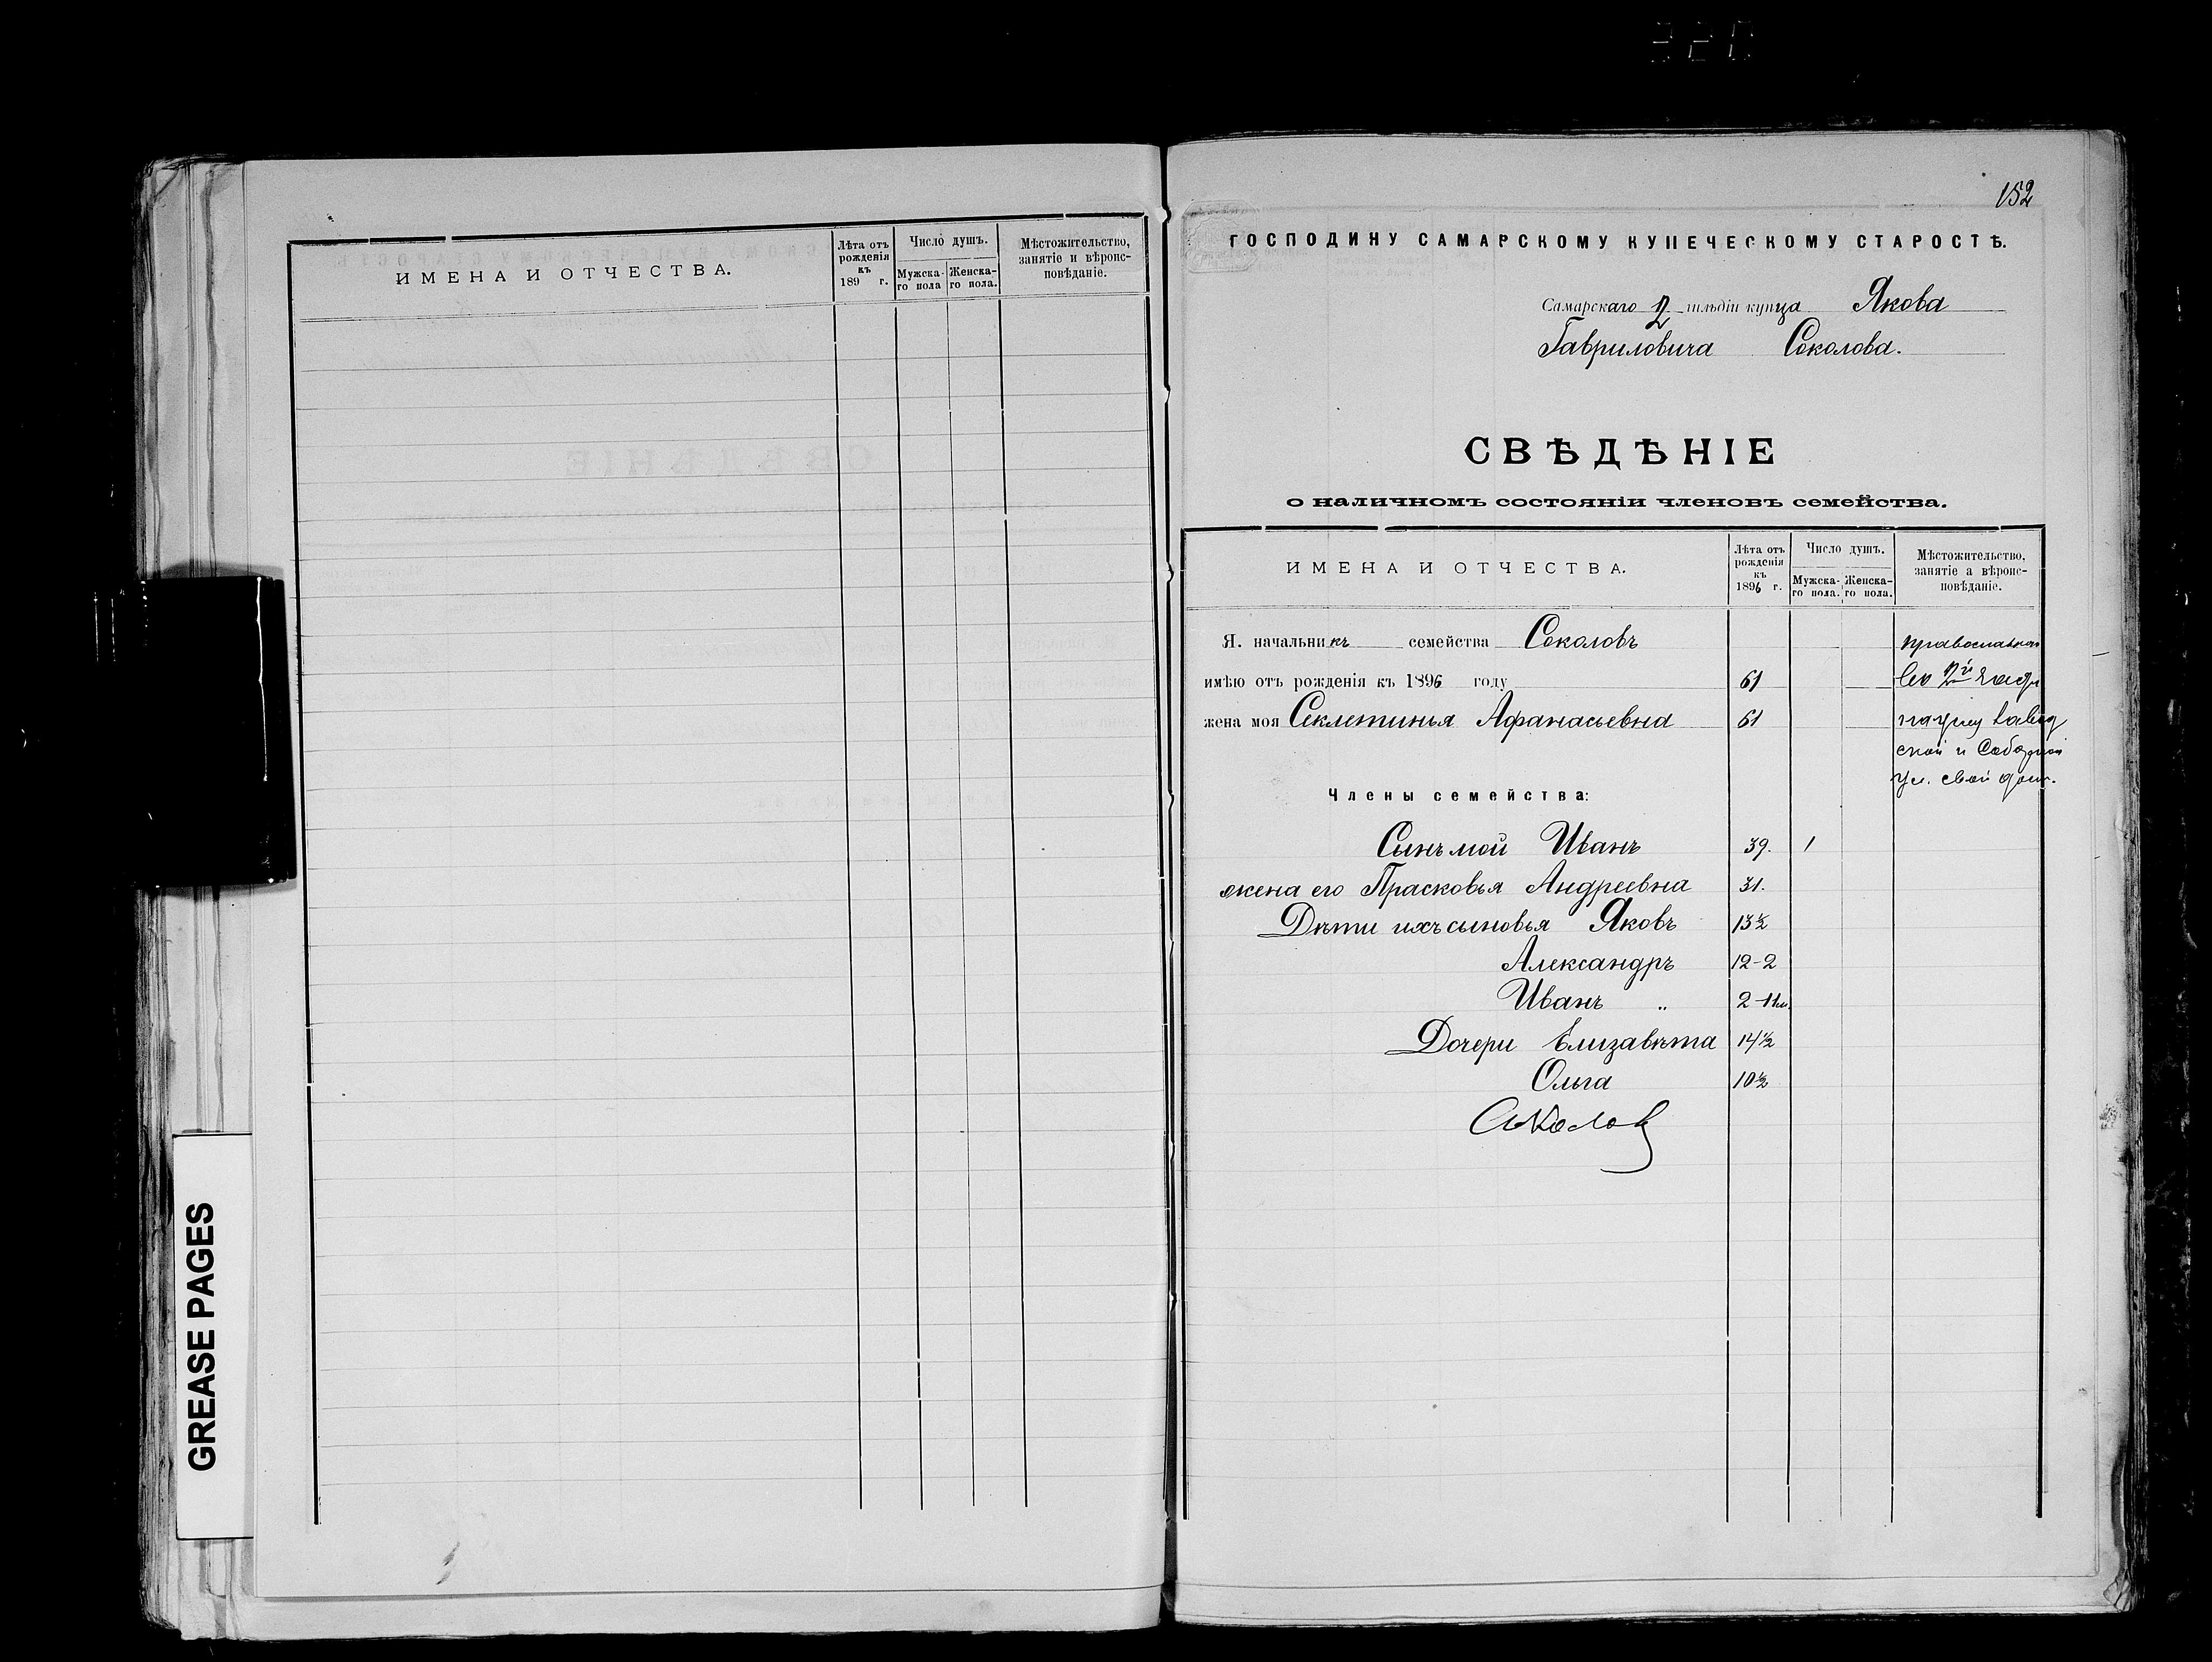 ИМЕНА И ОТЧЕСТВА.
Лѣта отъ рожденія къ 189 г.
Число душъ.
Мужска-го пола
Женска-го пола.
Мѣстожительство, занятіе и вѣроис-повѣданіе.
GREASE PAGES
152
ГОСПОДИНУ САМАРСКОМУ КУПЕЧЕСКОМУ СТАРОСТѢ.
Самарскаго 2 гильдіи купца Якова
Гавриловича Соколова.
СВѢДѢНІЕ
о наличномъ состояніи членовъ семейства.
ИМЕНА И ОТЧЕСТВА.
Лѣта отъ рожденія къ 1896 г.
Число душъ.
Мужска-го пола.
Женска-го пола.
Мѣстожительство, занятіе а вѣроис-повѣданіе.
Я. начальникъ семейства Соколовъ
имѣю отъ рожденія къ 1896 году 61 во 2й
жена моя Секлетинья Афанасьевна 61
ской и Соборной
ул. свой домъ.
Члены семейства:
Сынъ мой Иванъ 39. 1
жена его Прасковья Андреевна 31.
Дѣти ихъ сыновья Яковъ 13½
Александръ 12-2
Иванъ „ 2-11м.
Дочери Елизавѣта 14½
Ольга 10½
Соколов